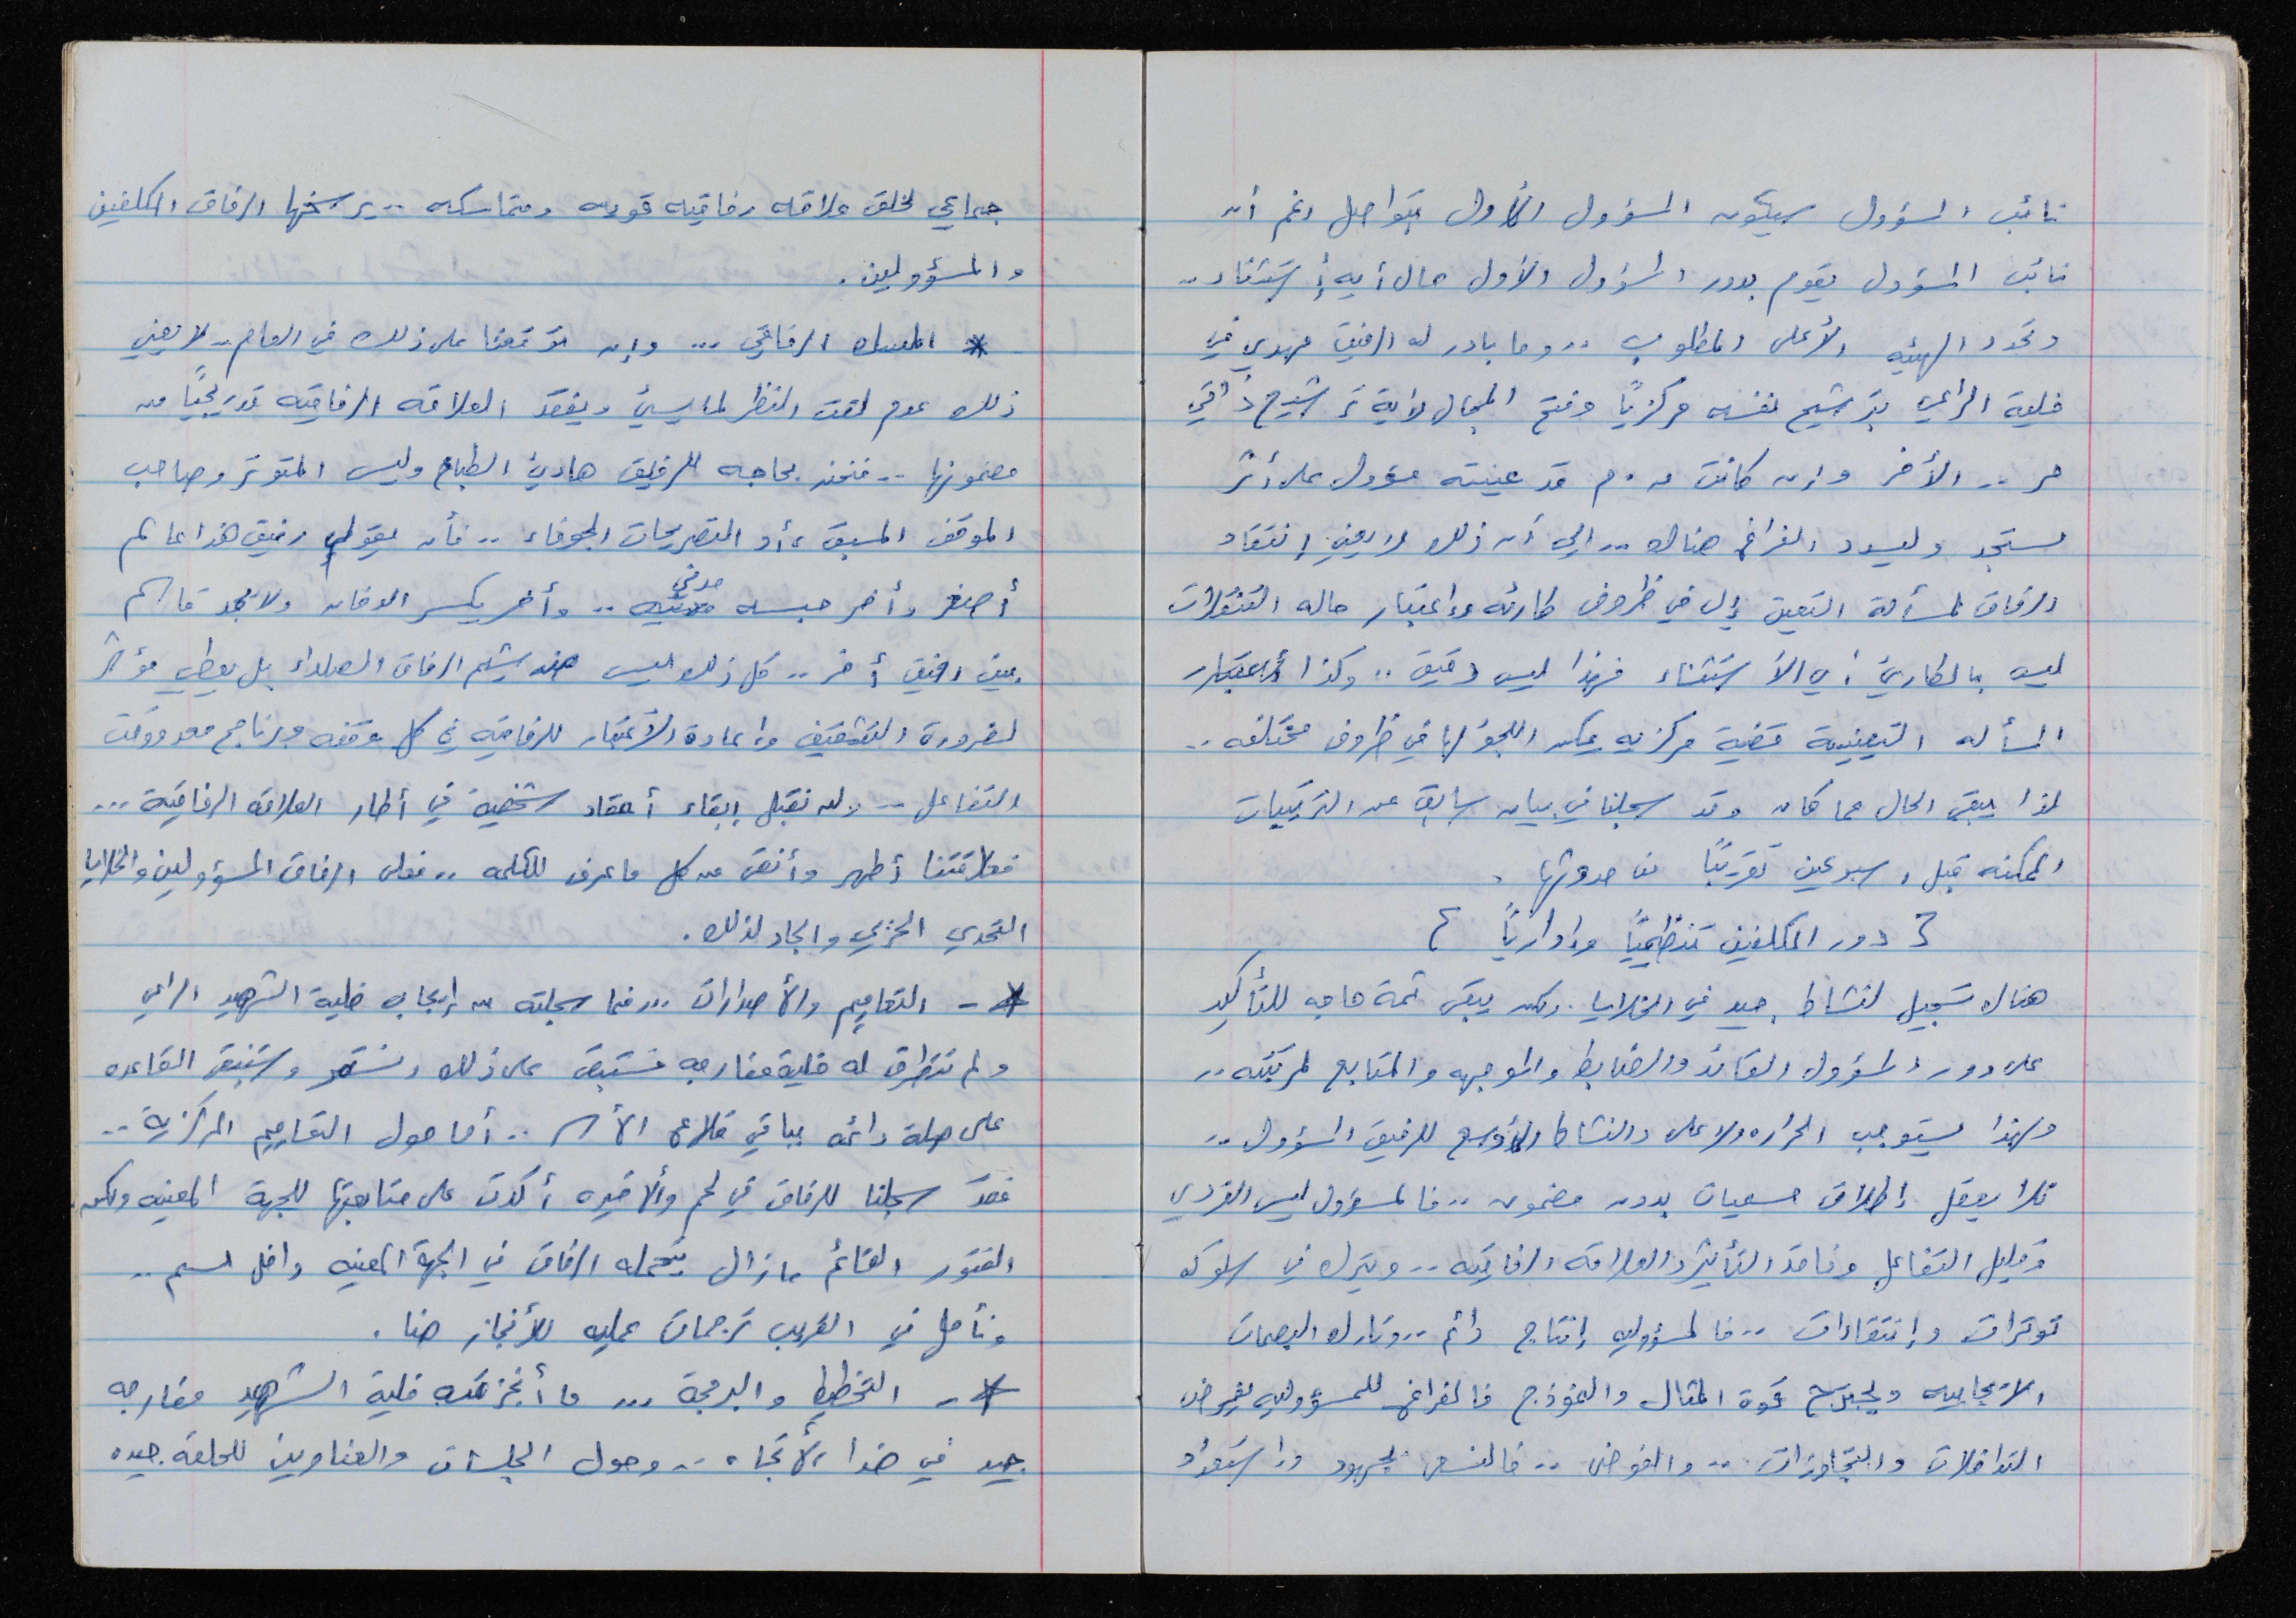 نائب المسؤول سيكون المسؤول الأول بتواصل رغم أن
نائب المسؤول يقوم بدور المسؤول الأول حال أيه إستثناء ..
وتحدد الهيئه الأعلى المطلوب .. وما بادر له الرفيق مهدي في
خلية الراعي بترشيح نفسه مركزيًا وفتح المجال لأية ترشيح ذاتي
حر .. الأخر وإن كانت م . م قد عينته مسؤول على أثر
مستجد وليسد الفراغ هناك .. إلى أن ذلك لا يعني إنتقاد
الرفاق لمسألة التعين إلا في ظروف طارئه وإعتبار حاله التنقلات
ليس بالطارئ أي الأستثناء فهذا ليس دقيق .. وكذا أعتبار
المسأله التعينية قضية مركزيه يمكن اللجؤ لها في ظروف مختلفه ..
لذا يبقى الحال عما كان وقد سجلنا في بيان سابق عن التركيبات
الممكنه قبل اسبوعين تقريبًا من حدوثها .
{ دور المكلفين تنظيميًا وإداريًا }
هناك تسجيل لنشاط جيد في الخلايا . ولكن يبقى ثمة حاجه للتأكيد
على دور المسؤول القائد والضابط والموجهه والمتابع لمرتبته ..
ولهذا يستوجب الحراره الاعلى والنشاط الأوسع للرفيق المسؤول ..
فلا يعقل إطلاق مسميات بدون مضمون .. فالمسؤول ليس الفردي
وقليل التفاعل وفاقد التأثير والعلاقه الرفاقيه .. ويترك في سلوكه
توترات وإنتقادات .. فالمسؤوليه إنتاج دائم .. وتارك البصمات
الإيجابيه ويجترح قوة المثال والنموذج فالفراغ للمسؤوليه يفرض
التداخلات والتجاوزات .. والفوضى .. فالنسعى لجهود واستعداد
جماعي لخلق علاقه رفاقيه قويه ومتماسكه .. يرسخها الرفاق المكلفين
والمسؤولين .
* المسلك الرفاقي ... وإن توقفنا على ذلك في العام .. لا يعني
ذلك عدم لفت النظر لما يسيئ ويفقد العلاقه الرفاقيه تدريجيًا من
مضمونها .. فنحن بحاجه للرفيق هادئ الطباع وليس المتوتر وصاحب
الموقف المسبق ، أو التصريحات الجوفاء .. فأن يقول لي رفيق هذا عالم
أصفر وأخر حبسه مدني .. وأخر يكسر الدخان ولا نجد قاسم
بين رفيق أخر .. كل ذلك ليس من شيم الرفاق الصلداء بل يعطي مؤشر
لضرورة التثقيف وإعادة الأعتبار للرفاقيه في كل وقفه وبرنامج معد ووقت
التفاعل .. ولن نقبل إبقاء أحقاد شخصية في أطار العلاقه الرفاقية ...
فعلاقتنا أطهر وأنقى من كل ما عرف للكلمه .. فعلى الرفاق المسؤولين والخلايا
التحدي الحزبي والجاد لذلك .
* - التعاميم والأصدارات ... فما سجلته من إيجاب خلية الشهيد الراعي
ولم تتطرق له خلية مفارجه فسيبقى على ذلك ونستمر وستبقى القاعده
على صله دائمه بباقي قلاع الأسر .. أما حول التعاميم المركزية ..
فقد سجلنا للرفاق في لحم والأخيره أكدت على متابعتها للجهة المعنيه ولكن
الفتور القائم مازال يتحمله الرفاق في الجهة المعنيه داخل القسم ..
ونأمل في القريب ترجمات عمليه للأنجاز هنا .
* - التخطيط والبرمجة ... ما أنجزته خلية الشهيد مفارجه
جيد في هذا الأتجاه .. وحول الجلسات والعناوين للحلقه جيده